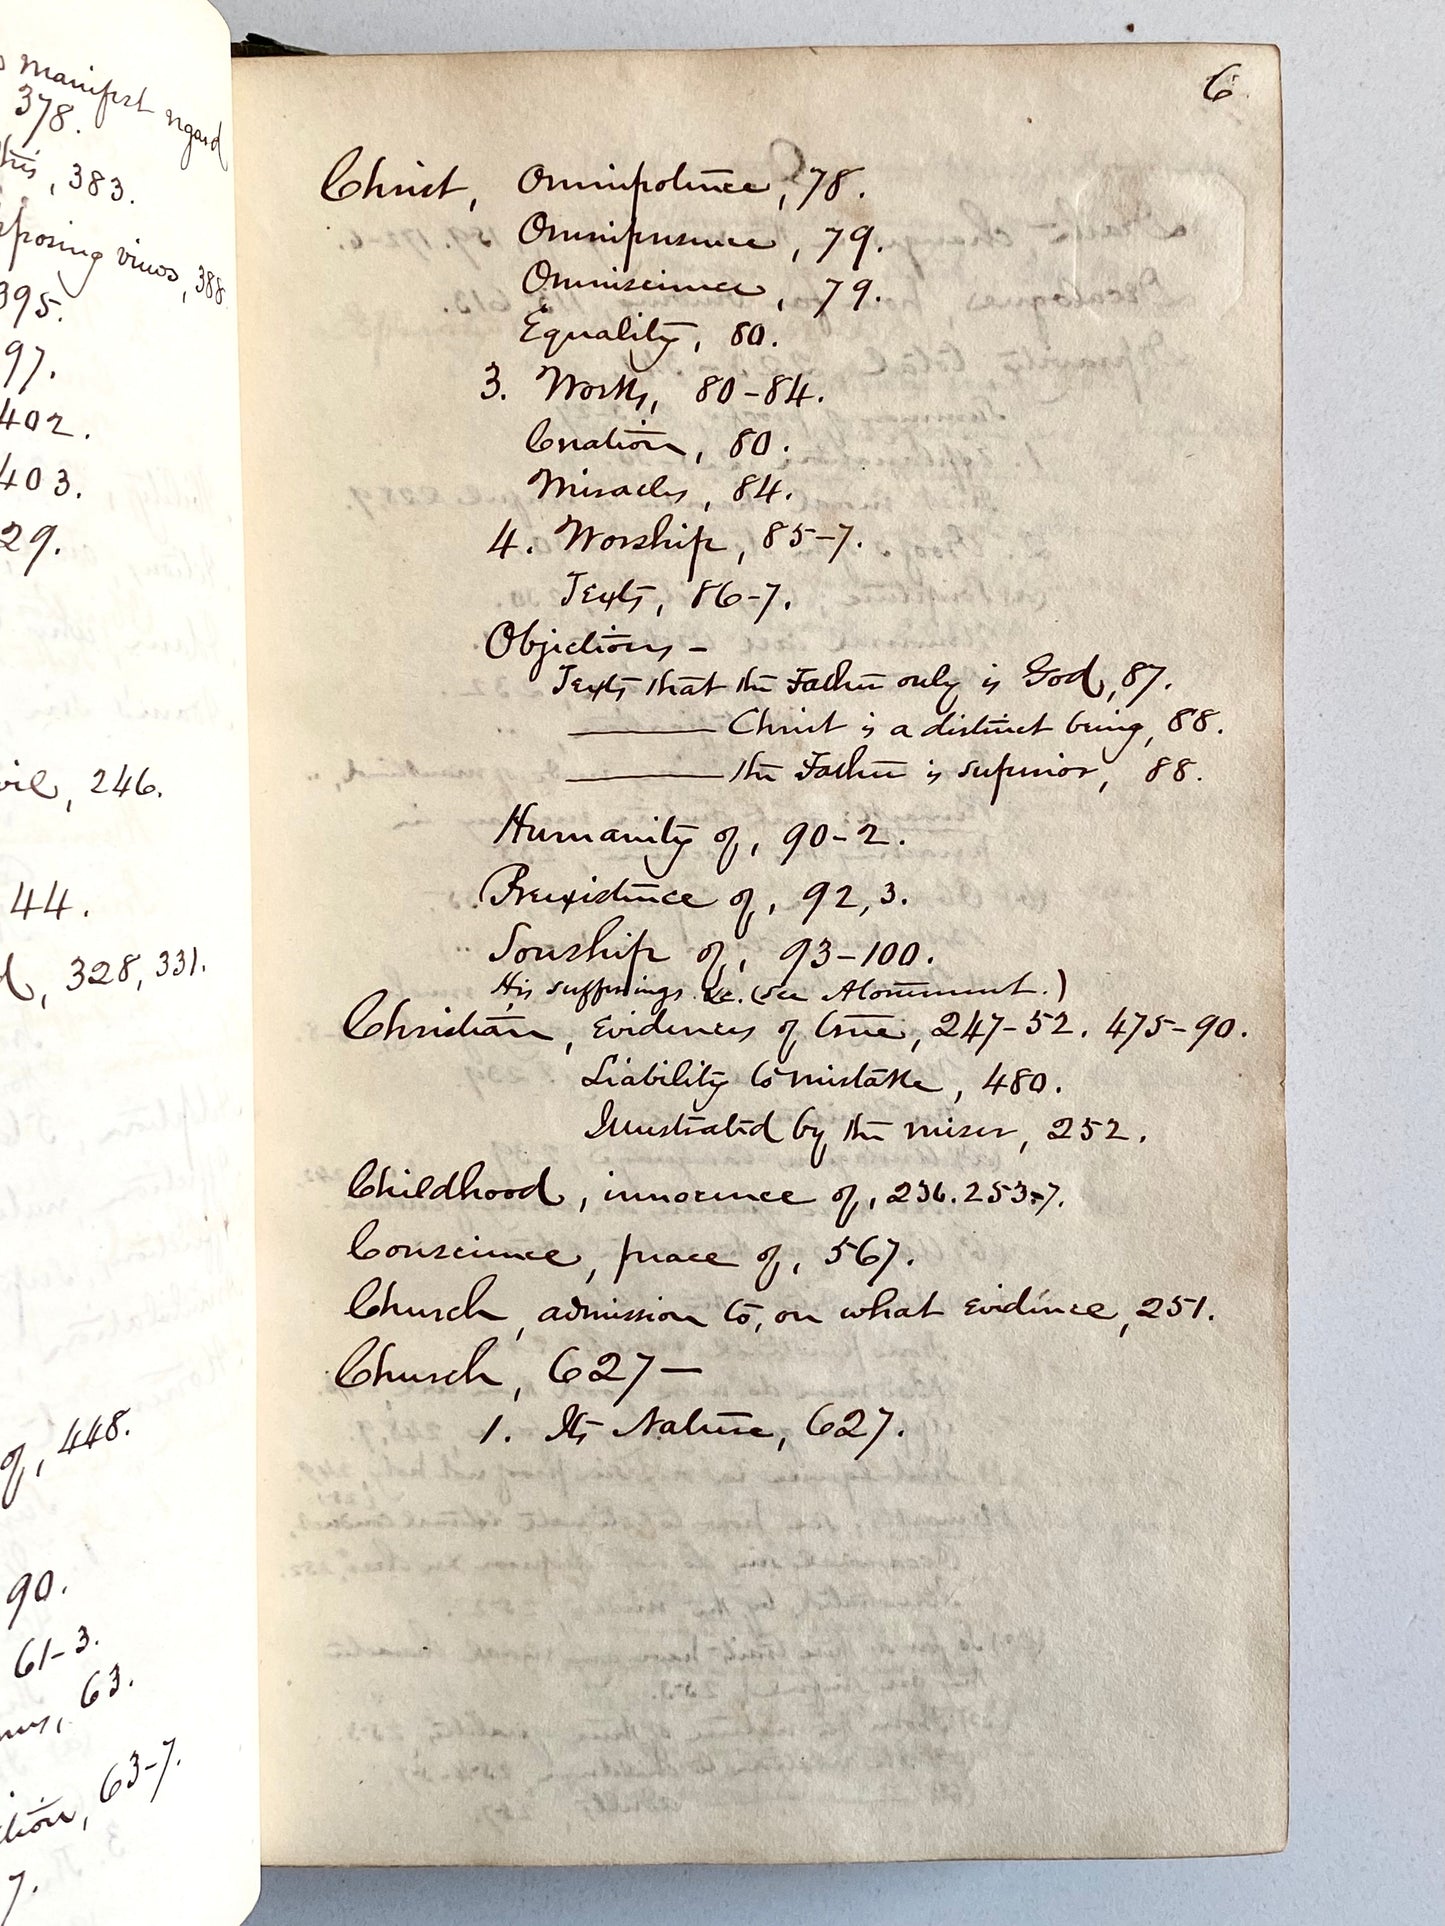 manifest regard
378.
this, 383.
opposing views, 388.
395.
97.
402.
403.
29.
evil, 246.
44.
328, 331.
of, 448.
90.
61-3.
63.
63-7.
7.
6
Christ, Omnipotence, 78.
Omnipresence, 79.
Omniscience, 79.
Equality, 80.
3. Works, 80-84.
Creation, 80.
Miracles, 84.
4. Worship, 85-7.
Texts, 86-7.
Objections -
Texts that the Father only is God, 87.
——— Christ is a distinct being, 88.
——— the Father is superior, 88.
Humanity of, 90-2.
Preexistence of, 92, 3.
Sonship of, 93-100.
His sufferings &c. (see Atonement.)
Christian, evidences of true, 247-52. 475-90.
Liability to mistake, 480.
Illustrated by the miser, 252.
Childhood, innocence of, 236. 253-7.
Conscience, peace of, 567.
Church, admission to, on what evidence, 251.
Church, 627—
1. Its Nature, 627.